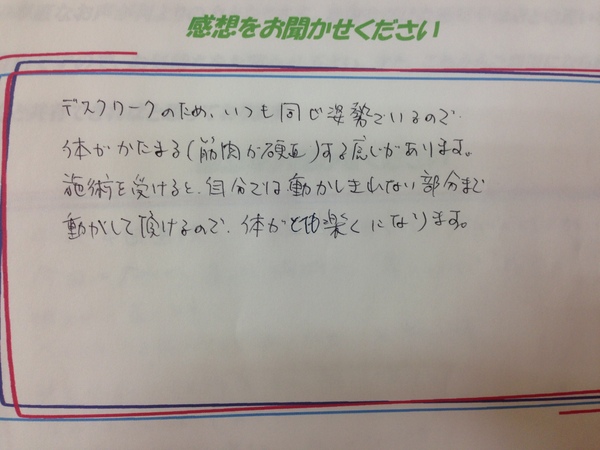 感想をお聞かせください
デスクワークのため、いつも同じ姿勢でいるので
体がかたまる(筋肉が硬直)する感じがあります。
施術を受けると、自分では動かしきれない部分まで
動かして頂けるので、体がとても楽くになります。